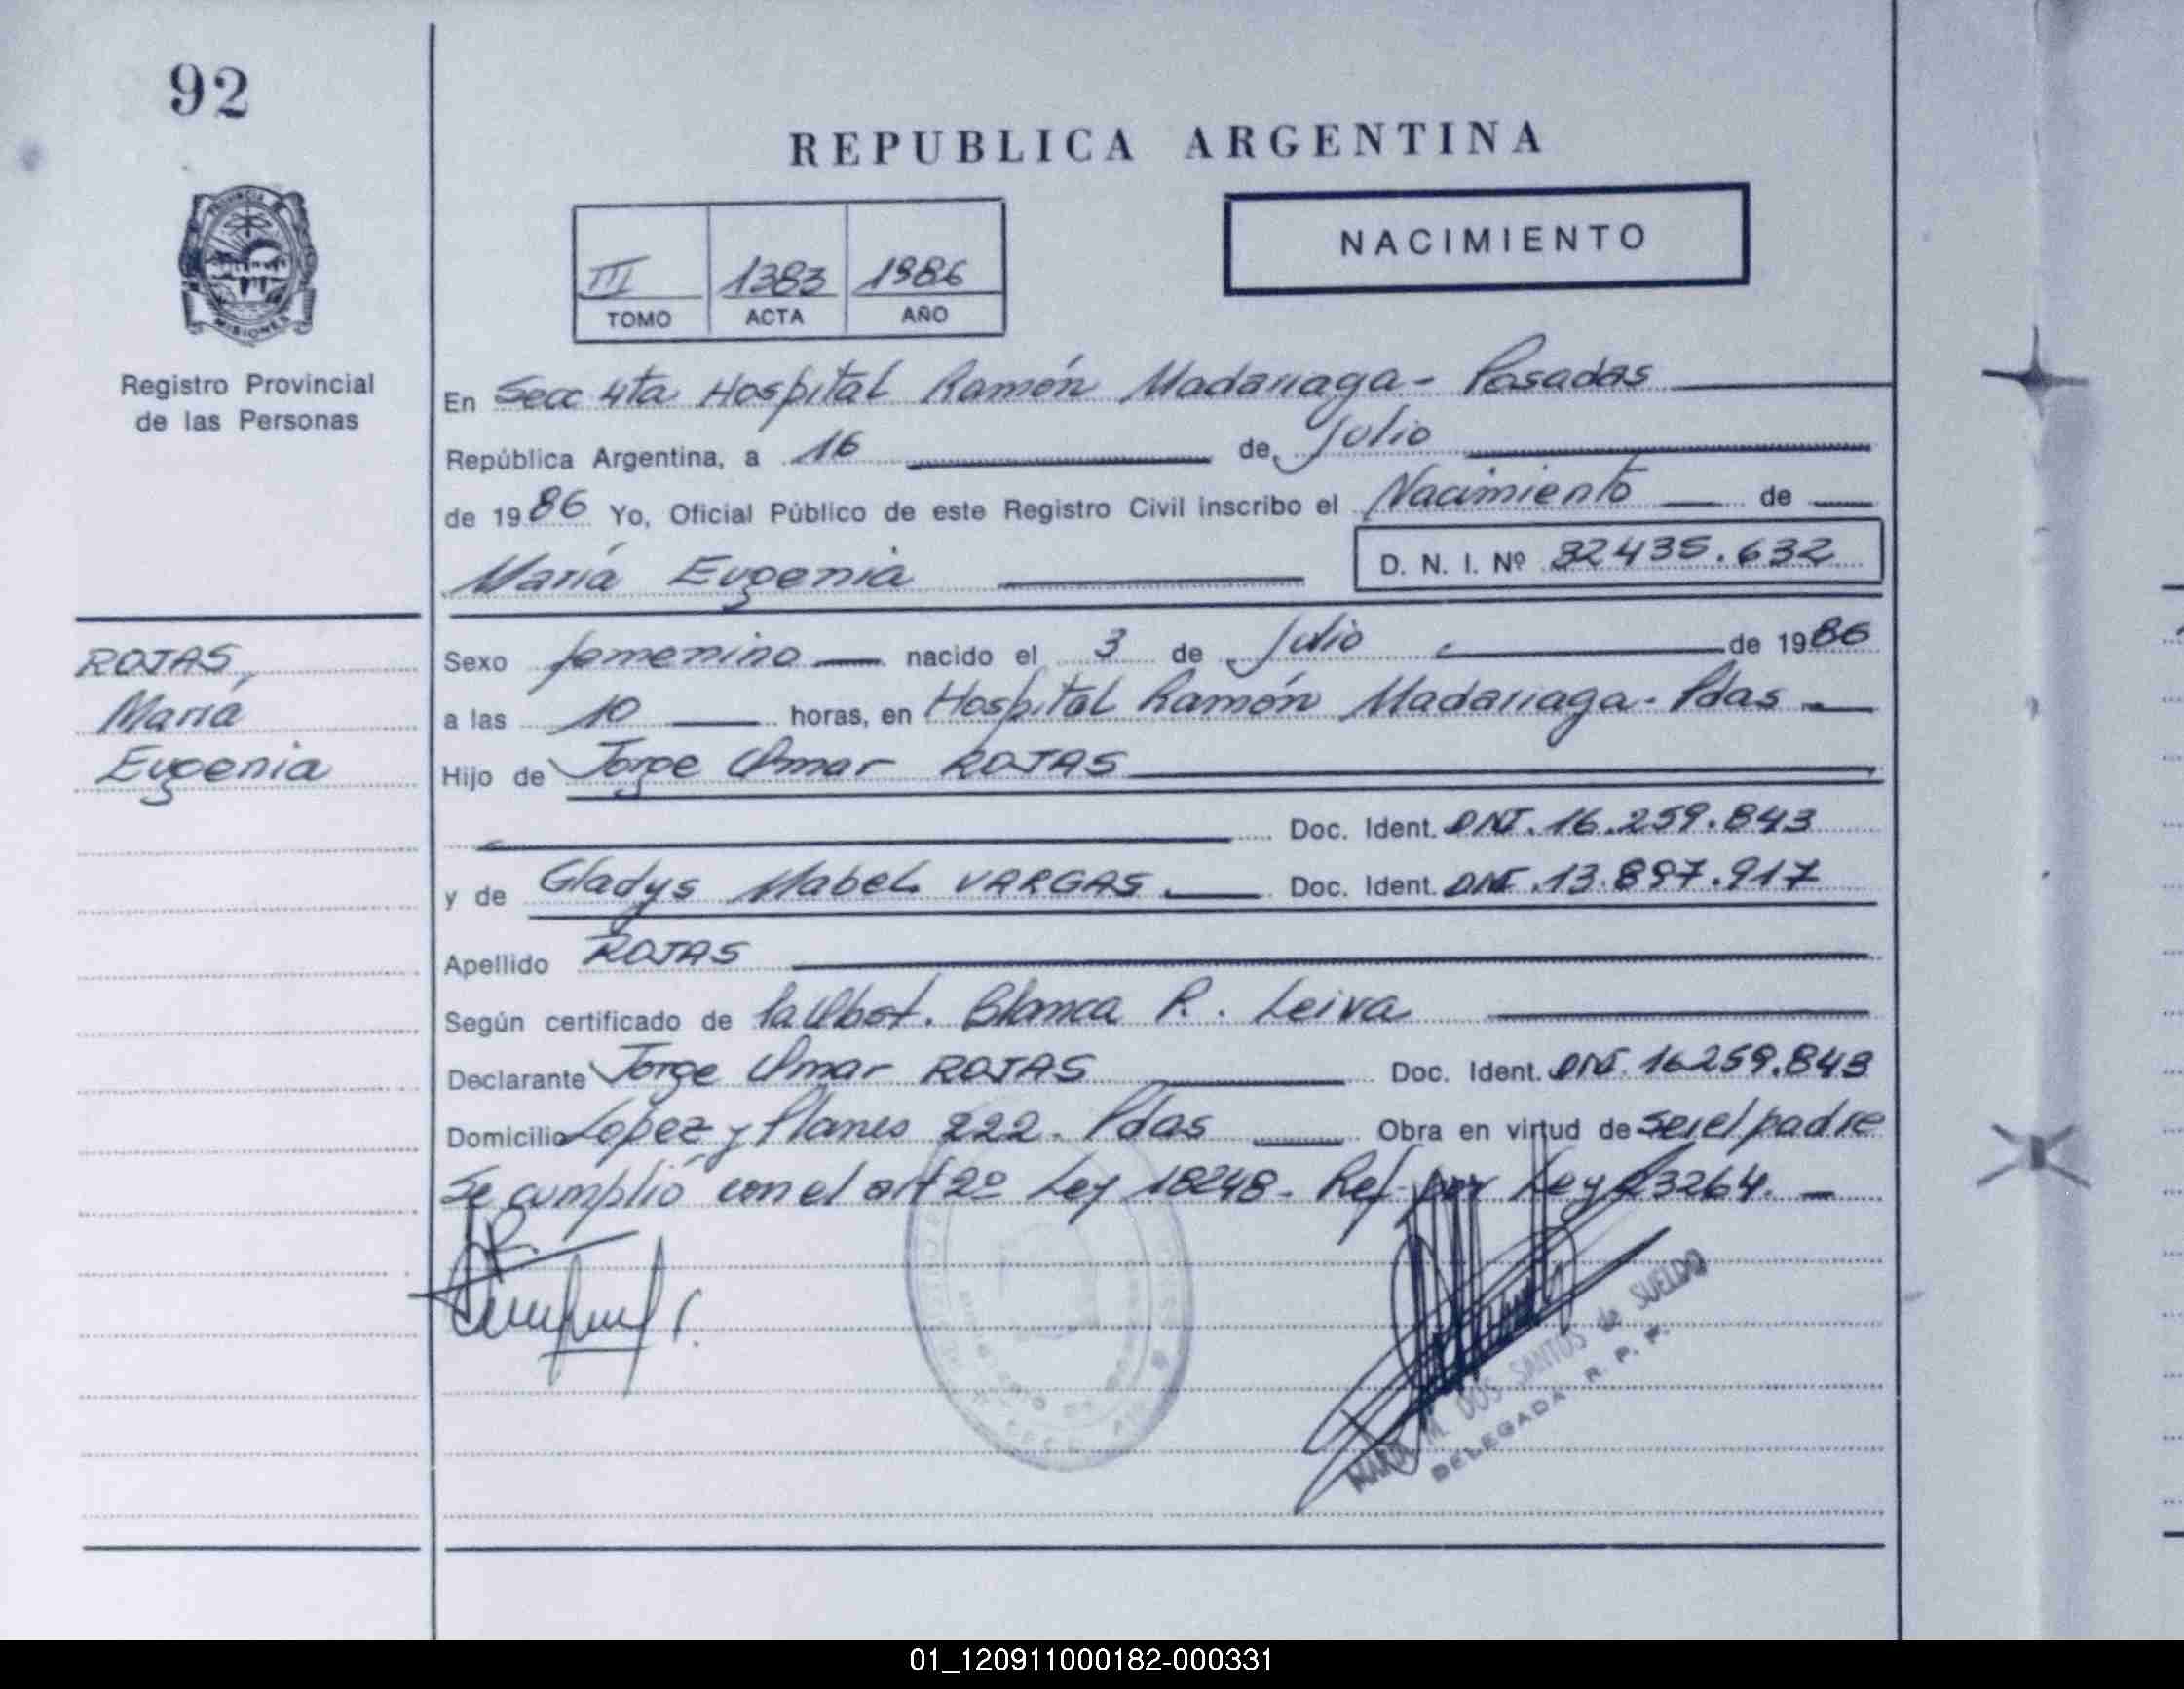 92
REPUBLICA ARGENTINA
PROVINCIA DE
MISIONES
Registro Provincial
de las Personas
III 1383 1986
TOMO ACTA AÑO
NACIMIENTO
En Secc 4ta Hospital Ramón Madariaga - Posadas
República Argentina, a 16 de Julio
de 1986 Yo, Oficial Público de este Registro Civil inscribo el Nacimiento de
María Eugenia D. N. I. Nº 32435.632
ROJAS,
María
Eugenia
Sexo femenino nacido el 3 de Julio de 1986
a las 10 horas, en Hospital Ramón Madariaga - Pdas
Hijo de Jorge Omar ROJAS
Doc. Ident. DNI. 16.259.843
y de Gladys Mabel VARGAS. Doc. Ident. DNI. 13.897.917
Apellido ROJAS
Según certificado de la Obst. Blanca R. Leiva
Declarante Jorge Omar ROJAS Doc. Ident. DNI. 16259.843
Domicilio Lopez y Planes 222. Pdas Obra en virtud de ser el padre
Se cumplió con el art 2º Ley 18248 - Ref. por Ley 23264.
M. DOS SANTOS de SUELDO
DELEGADA R. P. P.
01_120911000182-000331